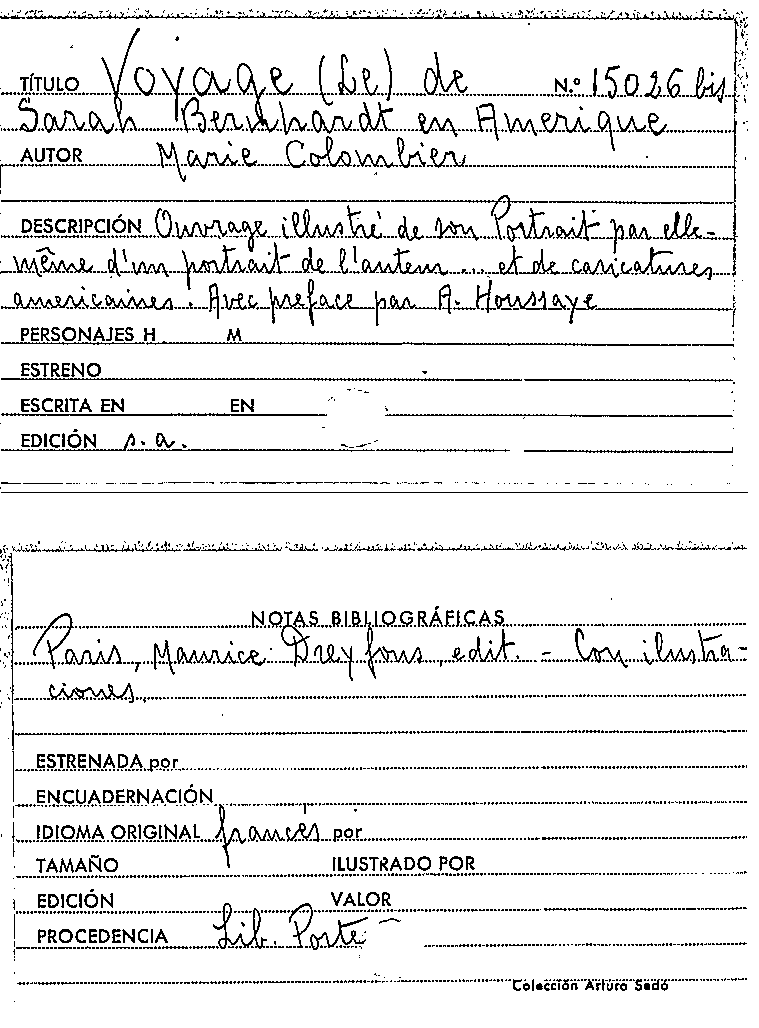 TÍTULO Voyage (Le) de N.º 15026 bis
Sarah Bernhardt en Amerique
AUTOR Marie Colombier
DESCRIPCIÓN Ouvrage illustré de son Portrait par elle-
même d'un portrait de l'auteur ... et de caricatures
americaines. Avec preface par A. Houssaye
PERSONAJES H M
ESTRENO
ESCRITA EN EN
EDICIÓN s.a.
NOTAS BIBLIOGRÁFICAS
Paris, Maurice Dreyfous, edit. - Con ilustra-
ciones.
ESTRENADA por
ENCUADERNACIÓN
IDIOMA ORIGINAL francés por
TAMAÑO ILUSTRADO POR
EDICIÓN VALOR
PROCEDENCIA Lib. Porte
Colección Arturo Sedó